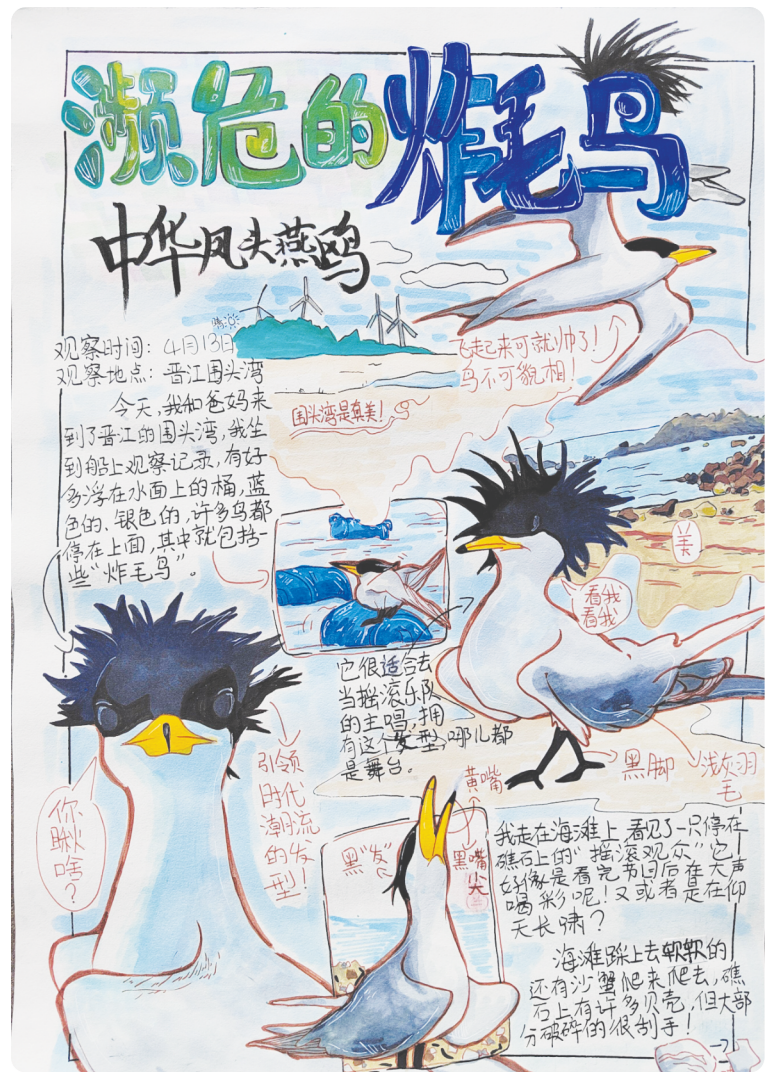 濒危的炸毛鸟
中华凤头燕鸥
晴
观察时间：4月13日
观察地点：晋江围头湾
今天，我和爸妈来
到了晋江的围头湾，我坐
到船上观察记录，有好
多浮在水面上的桶，蓝
色的、银色的，许多鸟都
停在上面，其中就包括一
些“炸毛鸟”。
飞起来可就帅了！
鸟不可貌相！
围头湾是真美！
美
看我
看我
它很适合去
当摇滚乐队
的主唱，拥
有这个发型，哪儿都
是舞台。
黑脚
浅灰羽
毛
引领
时代
潮流
的发
型！
你
瞅
啥
？
黄嘴
黑“发”
黑嘴
尖
我走在海滩上，看见了一只停在
礁石上的“摇滚观众”，它
好像是看完节目后在大声
喝彩呢！又或者是在仰
天长啸？
海滩踩上去软软的
还有沙蟹爬来爬去，礁
石上有许多贝壳，但大部
分破碎的很刮手！